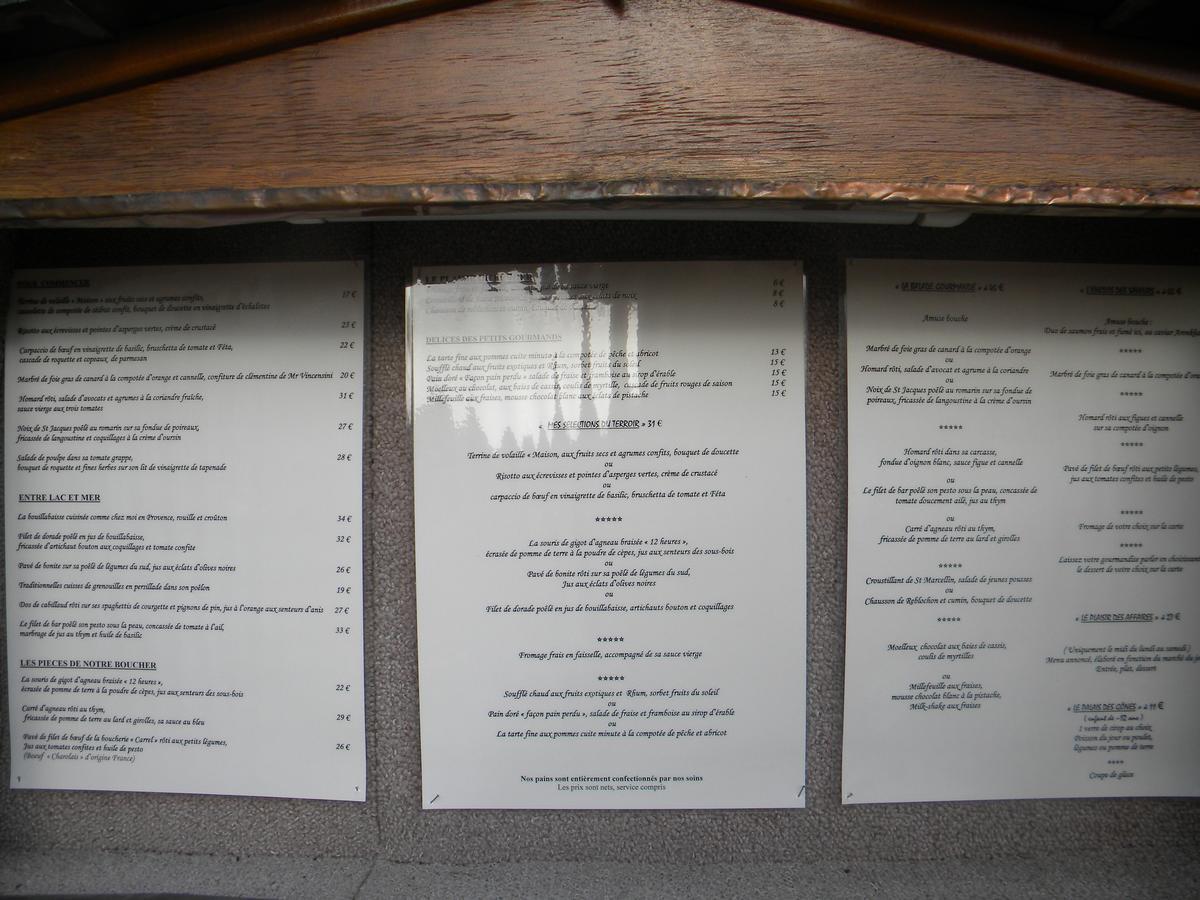 POUR COMMENCER
Terrine de volaille « Maison » aux fruits secs et agrumes confits, 17 €
cassolette de compotée de cédrat confit, bouquet de doucette en vinaigrette d'échalotes
Risotto aux écrevisses et pointes d'asperges vertes, crème de crustacé 23 €
Carpaccio de bœuf en vinaigrette de basilic, bruschetta de tomate et Féta, 22 €
cascade de roquette et copeaux de parmesan
Marbré de foie gras de canard à la compotée d'orange et cannelle, confiture de clémentine de Mr Vincensini 20 €
Homard rôti, salade d'avocats et agrumes à la coriandre fraîche, 31 €
sauce vierge aux trois tomates
Noix de St Jacques poêlé au romarin sur sa fondue de poireaux, 27 €
fricassée de langoustine et coquillages à la crème d'oursin
Salade de poulpe dans sa tomate grappe, 28 €
bouquet de roquette et fines herbes sur son lit de vinaigrette de tapenade
ENTRE LAC ET MER
La bouillabaisse cuisinée comme chez moi en Provence, rouille et croûton 34 €
Filet de dorade poêlé en jus de bouillabaisse, 32 €
fricassée d'artichaut bouton aux coquillages et tomate confite
Pavé de bonite sur sa poêlé de légumes du sud, jus aux éclats d'olives noires 26 €
Traditionnelles cuisses de grenouilles en persillade dans son poêlon 19 €
Dos de cabillaud rôti sur ses spaghettis de courgette et pignons de pin, jus à l'orange aux senteurs d'anis 27 €
Le filet de bar poêlé son pesto sous la peau, concassée de tomate à l'ail, 33 €
marbrage de jus au thym et huile de basilic
LES PIECES DE NOTRE BOUCHER
La souris de gigot d'agneau braisée « 12 heures », 22 €
écrasée de pomme de terre à la poudre de cèpes, jus aux senteurs des sous-bois
Carré d'agneau rôti au thym, 29 €
fricassée de pomme de terre au lard et girolles, sa sauce au bleu
Pavé de filet de bœuf de la boucherie « Carrel » rôti aux petits légumes, 26 €
Jus aux tomates confites et huile de pesto
(Bœuf « Charolais » d'origine France)
sauce vierge 6 €
aux éclats de noix 8 €
8 €
DELICES DES PETITS GOURMANDS
La tarte fine aux pommes cuite minute à la compotée de pêche et abricot 13 €
Soufflé chaud aux fruits exotiques et Rhum, sorbet fruits du soleil 15 €
Pain doré « Façon pain perdu » salade de fraise et framboise au sirop d'érable 15 €
Moelleux au chocolat, aux baies de cassis, coulis de myrtille, cascade de fruits rouges de saison 15 €
Millefeuille aux fraises, mousse chocolat blanc aux éclats de pistache 15 €
« MES SELECTIONS DU TERROIR » 31 €
Terrine de volaille « Maison, aux fruits secs et agrumes confits, bouquet de doucette
ou
Risotto aux écrevisses et pointes d'asperges vertes, crème de crustacé
ou
carpaccio de bœuf en vinaigrette de basilic, bruschetta de tomate et Féta
*****
La souris de gigot d'agneau braisée « 12 heures »,
écrasée de pomme de terre à la poudre de cèpes, jus aux senteurs des sous-bois
ou
Pavé de bonite rôti sur sa poêlé de légumes du sud,
Jus aux éclats d'olives noires
ou
Filet de dorade poêlé en jus de bouillabaisse, artichauts bouton et coquillages
*****
Fromage frais en faisselle, accompagné de sa sauce vierge
*****
Soufflé chaud aux fruits exotiques et Rhum, sorbet fruits du soleil
ou
Pain doré « façon pain perdu », salade de fraise et framboise au sirop d'érable
ou
La tarte fine aux pommes cuite minute à la compotée de pêche et abricot
Nos pains sont entièrement confectionnés par nos soins
Les prix sont nets, service compris
« LA BALADE GOURMANDE »
Amuse bouche
Marbré de foie gras de canard à la compotée d'orange
ou
Homard rôti, salade d'avocat et agrume à la coriandre
ou
Noix de St Jacques poêlé au romarin sur sa fondue de
poireaux, fricassée de langoustine à la crème d'oursin
*****
Homard rôti dans sa carcasse,
fondue d'oignon blanc, sauce figue et cannelle
ou
Le filet de bar poêlé son pesto sous la peau, concassée de
tomate doucement ailé, jus au thym
ou
Carré d'agneau rôti au thym,
fricassée de pomme de terre au lard et girolles
*****
Croustillant de St Marcellin, salade de jeunes pousses
ou
Chausson de Reblochon et cumin, bouquet de doucette
*****
Moelleux chocolat aux baies de cassis,
coulis de myrtilles
ou
Millefeuille aux fraises,
mousse chocolat blanc à la pistache,
Milk-shake aux fraises
Amuse bouche :
Duo de saumon frais et fumé ici, au caviar
*****
Marbré de foie gras de canard à la compotée
*****
Homard rôti aux figues et cannelle
sur sa compotée d'oignon
*****
Pavé de filet de bœuf rôti aux petits légumes,
jus aux tomates confites et huile de pesto
*****
Fromage de votre choix sur la carte
*****
Laissez votre gourmandise parler en choisissant
le dessert de votre choix sur la carte
« LE PLAISIR DES AFFAIRES »
( Uniquement le midi du lundi au samedi )
Menu annoncé, élaboré en fonction du marché du
Entrée, plat, dessert
« LE PALAIS DES GÔNES »
( enfant de -12 ans )
1 verre de sirop au choix
Poisson du jour ou poulet,
légumes ou pomme de terre
****
Coupe de glace